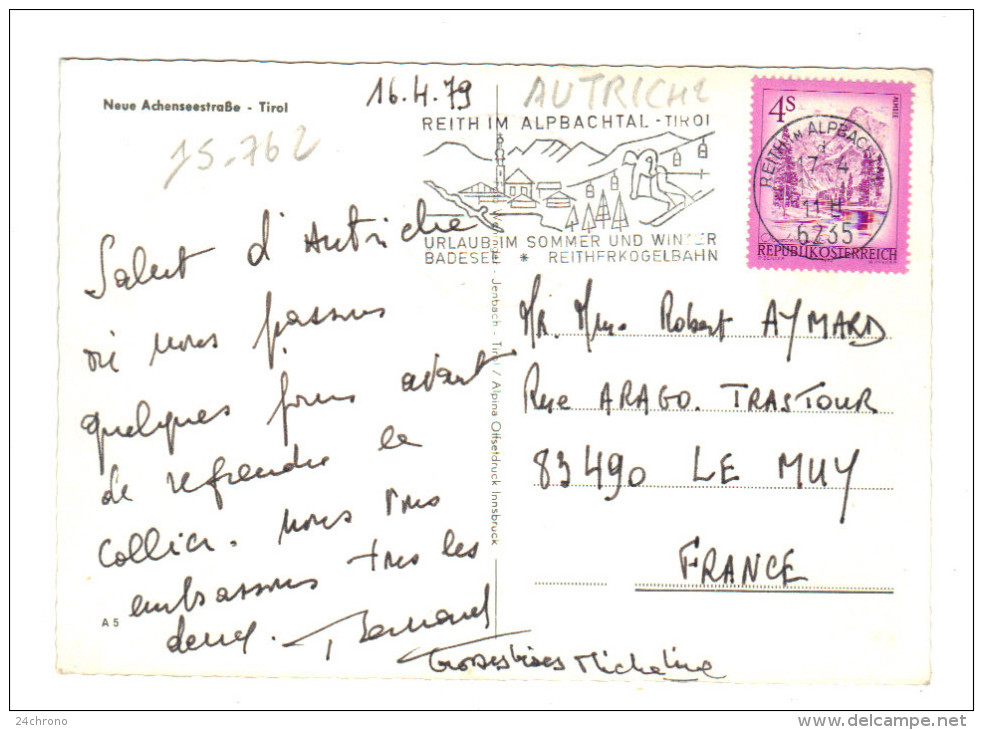 Neue Achenseestraße - Tirol
16.4.79
AUTRICHE
15.762
REITH IM ALPBACHTAL - TIROL
URLAUB IM SOMMER UND WINTER
BADESEE * REITHERKOGELBAHN
4S
ALMSEE
REITH IM ALPBACHTAL
17-4
6235
REPUBLIK ÖSTERREICH
Salut d'Autriche
où nous passons
quelques jours avant
de reprendre le
collier. Nous vous
embrassons tous les
deux. Bernard
Grosses bises Micheline
Jenbach - Tirol / Alpina Offsetdruck Innsbruck
Mr Mme Robert AYMARD
Rue ARAGO. TRASTOUR
83490 LE MUY
FRANCE
A 5
24chrono
www.delcampe.net